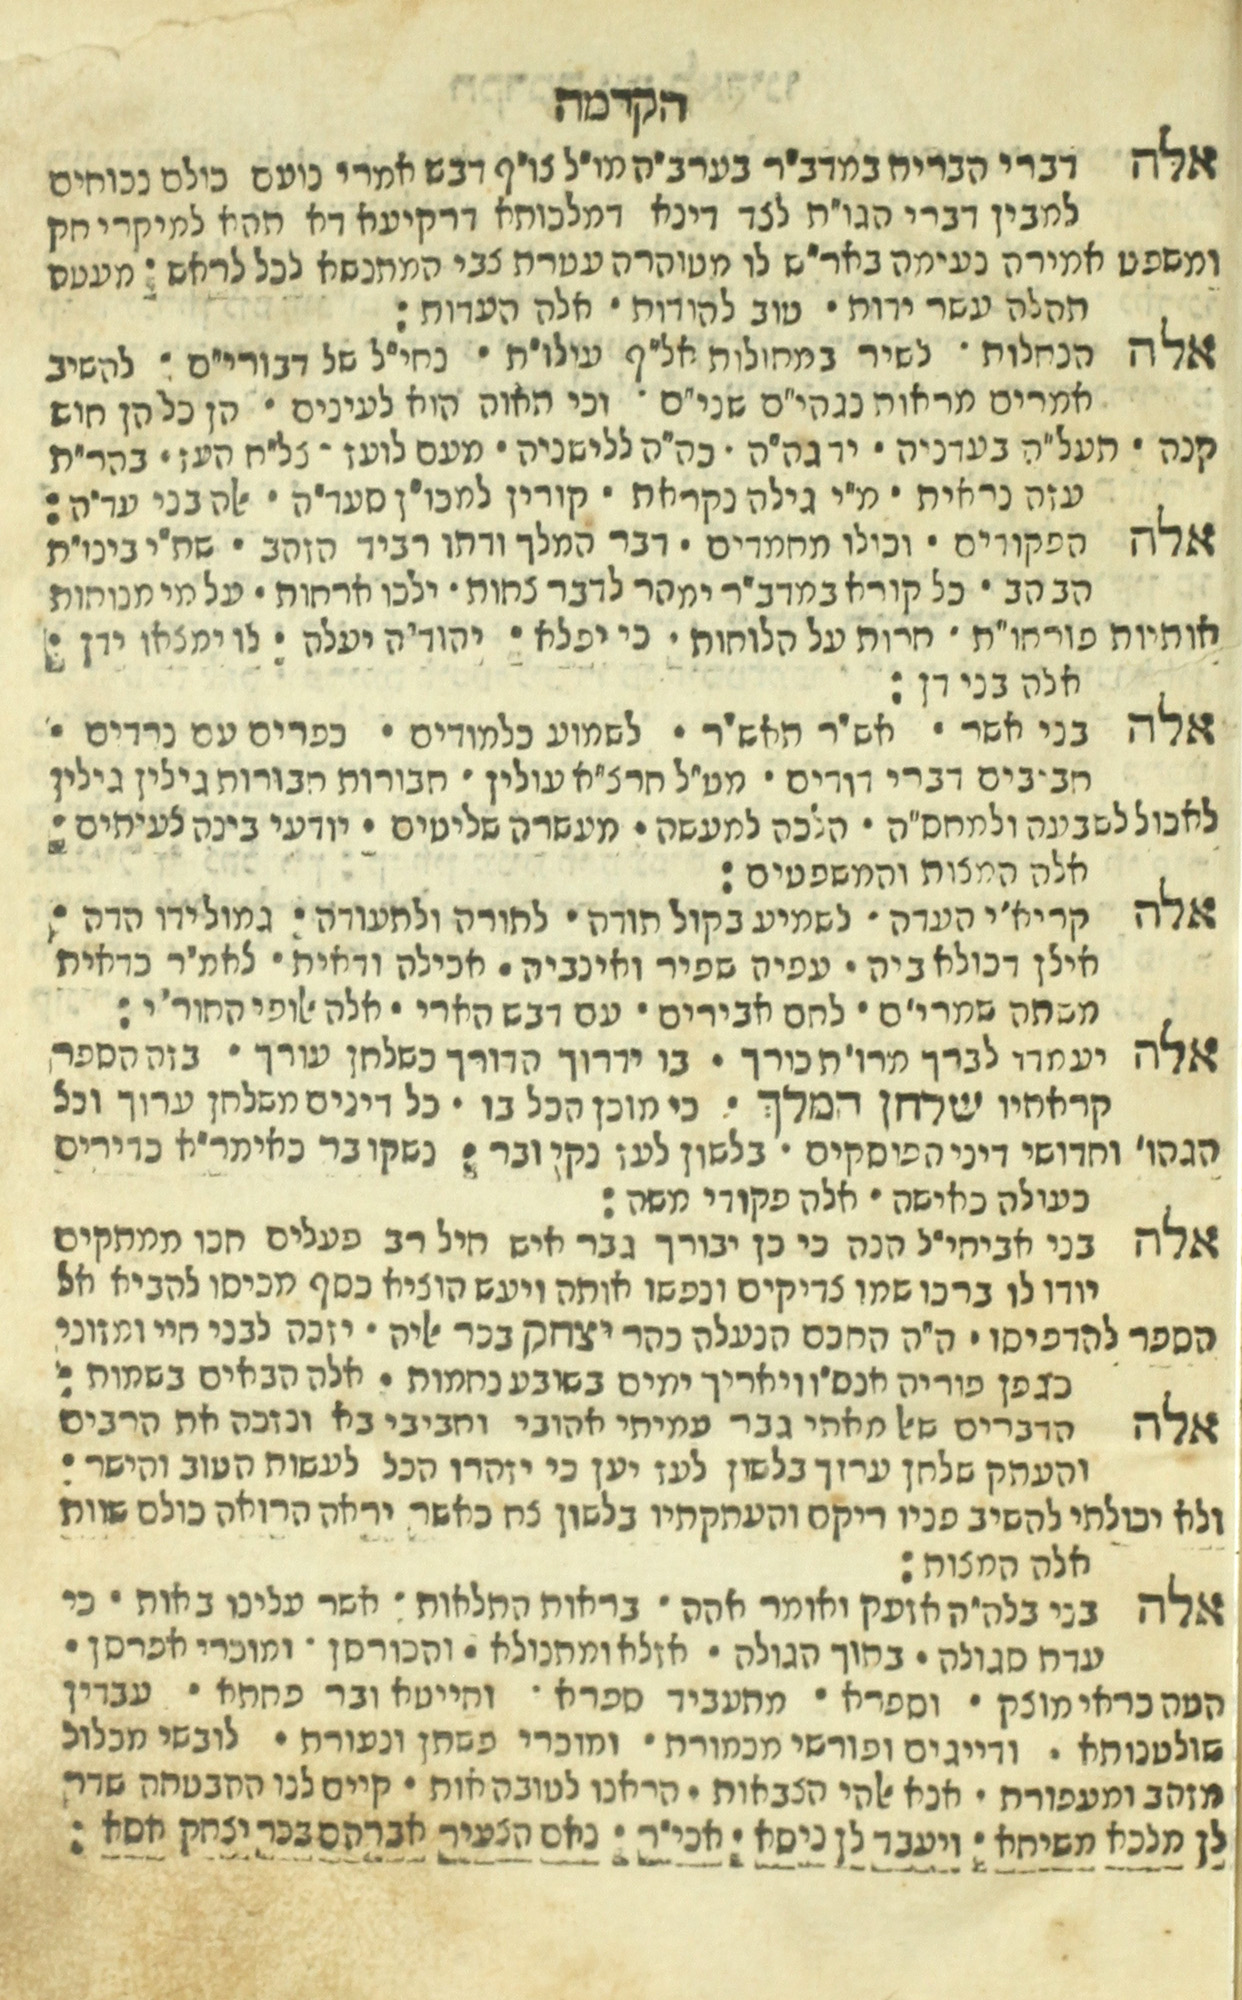 הקדמה
אלה דברי הברית במדב"ר בערב"ה מו"ל סו"ף דבש אמרי נועם כולם נכוחים
למבין דברי הגו"ת לצד דינא דמלכותא דרקיעא דא תהא למיקרי חק
ומשפט אמירה נעימה באר"ש לו מטוהרה עטרת צבי המתנשא לכל לראש : מעטם
תהלה עשר ידות • טוב להודות • אלה העדות :
אלה הנחלות • לשיר במחולות אל"ף עילו"ת • נחי"ל של דבורי"ם : להשיב
אמרים מראות נגהי"ם שני"ם • וכי תאוה הוא לעינים • הן כל הן חוש
קנה • תעל"ה בעדניה • יד גה"ה • כה"ה ללישניה • מעם לועז • צל"ח העז • בהר"ת
עזה נראית • מ"י גילה נקראת • קורין למכו"ן סער"ה • אלה בני עד"ה :
אלה הפקודים • וכולו מחמדים • דבר המלך ודתו רביד הזהב • שת"י בינו"ת
הב הב • כל קורא במדב"ר ימהר לדבר צחות • ילכו ארחות • על מי מנוחות
אותיות פורחו"ת • חרות על הלוחות • כי יפלא • יהוד"ה יעלה : לו ימצאו ידן :
אלה בני דן :
אלה בני אשר • אש"ר תאש"ר • לשמוע כלמודים • כפרים עם נרדים •
חביבים דברי דודים • מט"ל חרצ"א עולין • חבורות חבורות גילין גילין
לאכול לשבעה ולמחס"ה • הלכה למעשה • מעשרה שליטים • יודעי בינה לעיתים :
אלה המצות והמשפטים :
אלה קריא"י העדה • לשמיע בקול תודה • לתורה ולתעודה : גמולידו הדה •
אילן דכולא ביה • עפיה שפיר ואינביה • אכילה ודאית • לאמ"ר כדאית
משתה שמרי"ם • לחם אבירים • עם דבש הארי • אלה אלופי החור"י :
אלה יעמדו לברך מרו"ת כורך • בו ידרוך הדורך כשלחן עורך • בזה הספר
קראתיו שלחן המלך • כי מוכן הכל בו • כל דינים משלחן ערוך וכל
הגהו' וחדושי דיני הפוסקים • בלשון לעז נקי ובר : נשקו בר כאימר"א כדירים
כעולה כאישה • אלה פקודי משה :
אלה בני אביחי"ל הנה כי כן יבורך גבר איש חיל רב פעלים חכו ממתקים
יודו לו ברכו שמו צדיקים ונפשו אותה ויעש הוציא כסף מכיסו להביא אל
הספר להדפיסו • ה"ה החכם הנעלה כהר יצחק בכר אליה • יזכה לבני חיי ומזוני
כגפן פוריה אנס"ו ויאריך ימים בשובע נחמות • אלה הבאים בשמות :
אלה הדברים שאל מאתי גבר עמיתי אהובי וחביבי בא ונזכה את הרבים
והעתק שלחן ערוך בלשון לעז יען כי יזהרו הכל לעשות הטוב והישר :
ולא יכולתי להשיב פניו ריקם והעתקתיו בלשון צח כאשר יראה הרואה כולם שוות
אלה המצות :
אלה בני בלה"ה אזעק ואומר אהה • בראות התלאות : אשר עלינו באות • כי
עדת סגולה • בתוך הגולה • אזלא ומתנולא • והכורסן • ומוכרי אפרסן •
המה כראי מוצק • וספרא • מתעביד ספרא • והייטא ובר פחתא • עבדין
שולטנותא • ודייגים ופורשי מכמורת • ומוכרי פשתן ונעורת • לובשי מכלול
מזהב ומעפורת • אנא אלהי הצבאות • הראנו לטובה אות • קיים לנו ההבטחה שדר
לן מלכא משיחא • ויעבד לן ניסא • אכי"ר : נאם הצעיר אברהם בכר יצחק אסא :